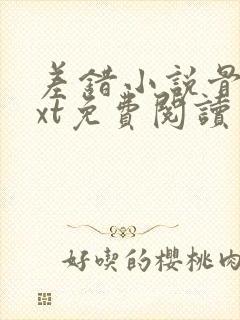 差錯小說骨
xt免費閱讀
好喫的櫻桃肉